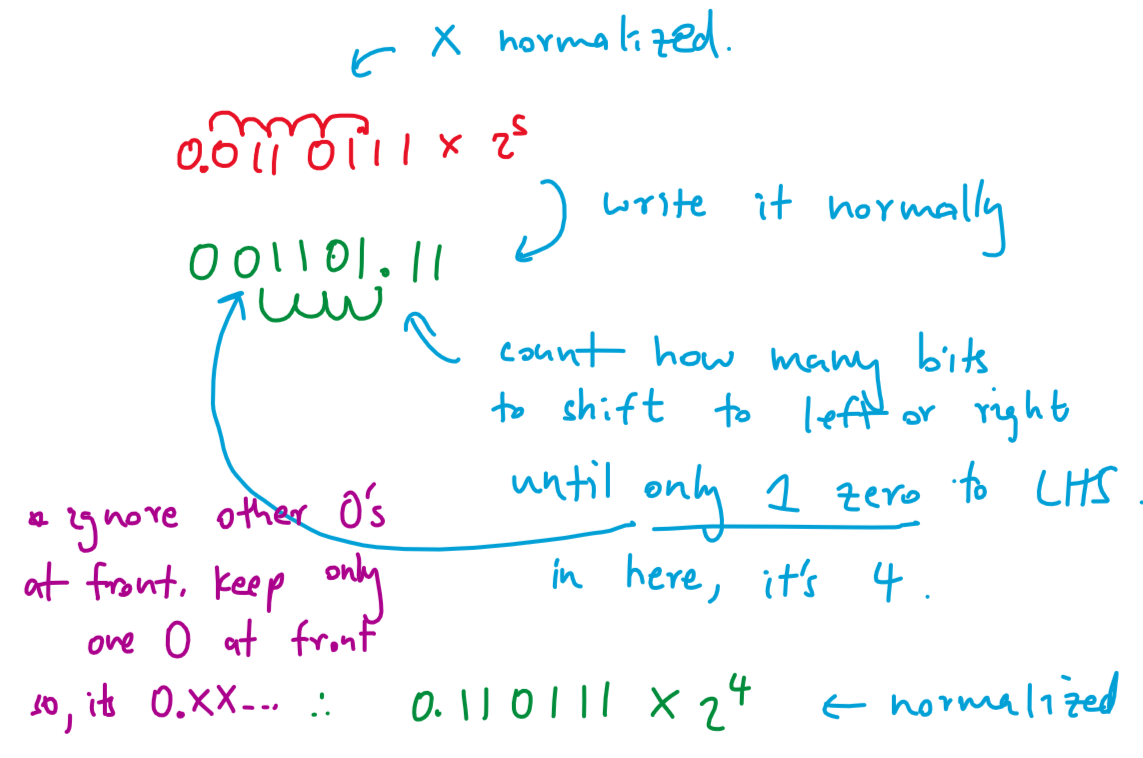 ← X normalized.
0.0110111 × 2⁵
write it normally
001101.11
count how many bits
to shift to left or right
until only 1 zero to LHS.
in here, it's 4.
* ignore other 0's
at front. keep only
one 0 at front
so, its 0.XX... ∴ 0.110111 × 2⁴ ← normalized